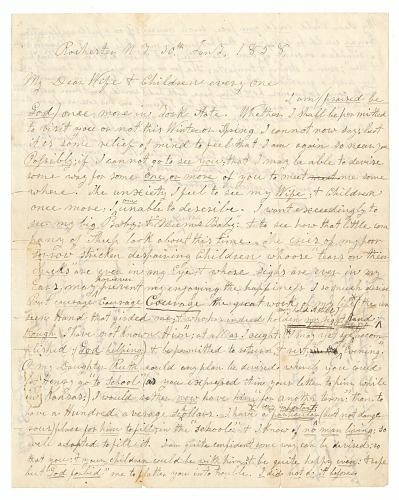 Rochester N Y 30th Jan'y, 1858
My Dear Wife & Children every one
I am (praised be
God) once more in York State. Whether I shall be permitted
to visit you or not this Winter or Spring I cannot now say; but
it is some relief of mind to feel that I am again so near you.
Possibly; if I cannot go to see you; that I may be able to devise
some way for some one or more of you to meet me some
where. The anxiety I feel to see my Wife; & Children
once more; I am unable to describe. I want exceedingly to
see my big Baby; & Ruth's Baby: & to see how that little com-
pany of Sheep look about this time. The cries of my poor
sorrow stricken despairing Children whoose tears on their
cheeks are ever in my Eye; & whose sighs are ever in my
Ears; may however prevent my enjoying the happiness I so much desire.
But courage Courage Courage the great work of my life (the un-
seen Hand that girded me; & who has indeed holden my right hand may hold it still;
though I have not known Him; at all as I ought:) I may yet see accom-
plished; (God helping;) & be permitted to return, & rest at evening.
O my Daughter Ruth could any plan be devised whereby you could
let Henry go "to School" (as you expressed it in your letter to him while
in Kansas;) I would rather now have him for another term: than to
have a Hundred average scholars. I have a particular & very important; but not dange-
rous; place for him to fill; in the "school"; & I know of no man living; so
well adopted to fill it. I am quite confident some way can be devised; so
that you; & your children could be with him; & be quite happy even: & safe
but "God forbid" me to flatter you into trouble. I did not do it before.